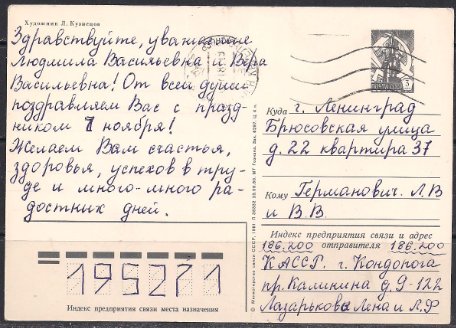 Художник Л. Кузнецов
Здравствуйте, уважаемые
Людмила Васильевна и Вера
Васильевна! От всей души
поздравляем Вас с празд-
ником 7 ноября!
Желаем Вам счастья,
здоровья, успехов в тру-
де и много-много ра-
достных дней.
Куда г. Ленинград
Брюсовская улица
д. 22 квартира 37
Кому Германович Л.В
и В.В
Индекс предприятия связи и адрес
отправителя
186.200 186.200
КАССР г. Кондопога
пр. Калинина д 9-122
Лазарькова Лена и Л.Ф
195271
Индекс предприятия связи места назначения